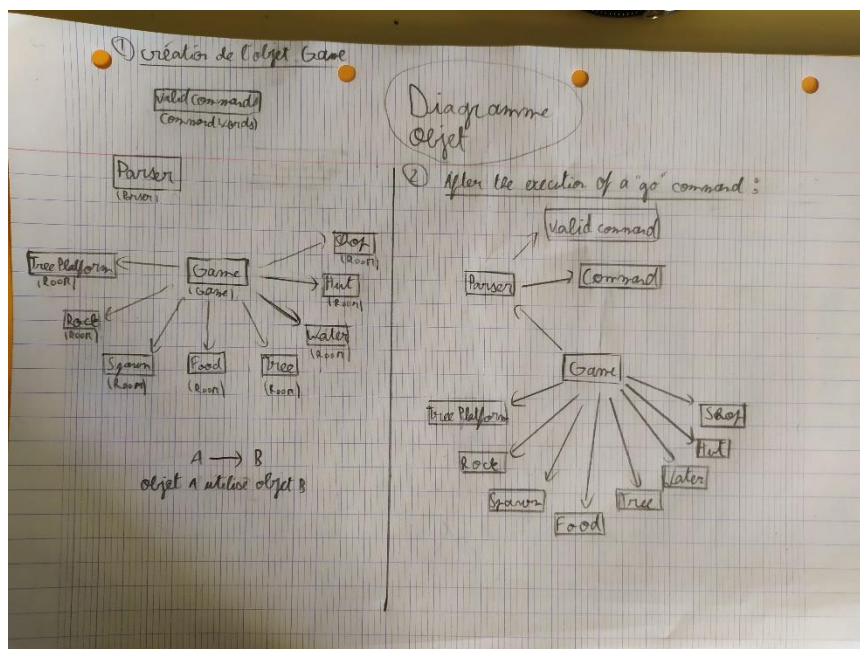 ① création de l'objet Game
valid commands
(Command Words)
Parser
(Parser)
Shop
(Room)
Tree Platform
(Room)
Game
(Game)
Hut
(Room)
Rock
(Room)
Water
(Room)
Spawn
(Room)
Food
(Room)
Tree
(Room)
A → B
objet A utilise objet B
Diagramme
objet
② After the execution of a "go" command :
Valid command
Parser
Command
Game
Tree Platform
Shop
Hut
Rock
Water
Spawn
Tree
Food